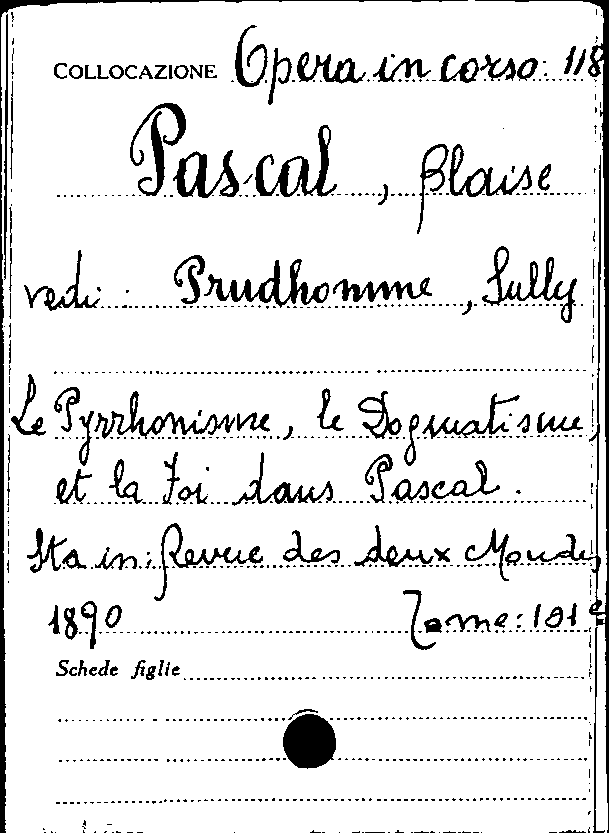 COLLOCAZIONE Opera in corso: 118
Pascal, Blaise
vedi: Prudhomme, Sully
Le Pyrrhonisme, le Dogmatisme,
et la Foi dans Pascal.
Sta in: Revue des deux Mondes
1890 Tome: 101e
Schede figlie